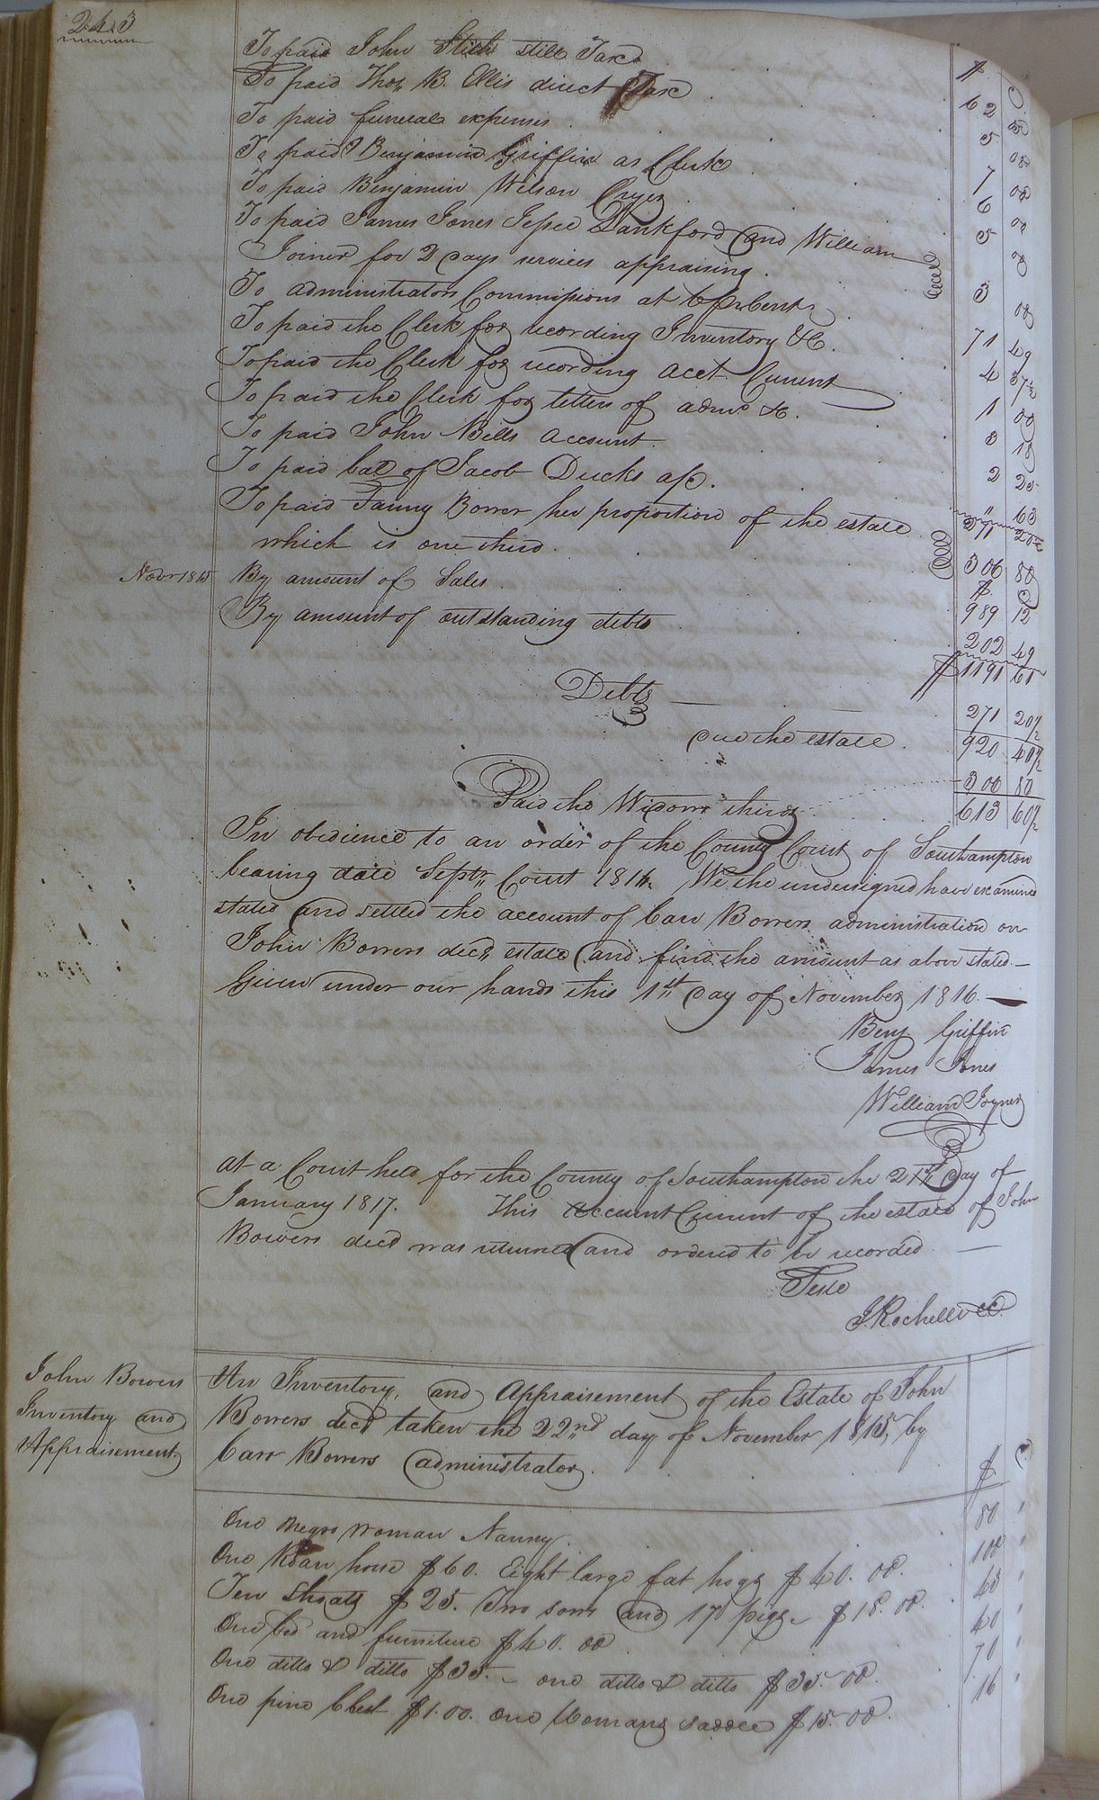 243
To paid John Stith still Tax $ C
To paid Thos. B. Ellis direct Tax 62
To paid funeral expenses 5 00
To paid Benjamin Griffin as Clerk 7 00
To paid Benjamin Wilson Cryer 6 00
To paid James Jones Jesse Lankford and William 5 00
Joiner for 2 days services appraising. 3 00
To administrators Commissions at 6 pr. Cent 71 49
To paid the Clerk for recording Inventory &C.
To paid the Clerk for recording acct. Current 1 00
To paid the Clerk for letters of adm. &c. 3 18
To paid John Nills account 2 25
To paid bal of Jacob Ducks a/c. " 63
271 20½
To paid Fanny Bowers her proportion of the estate
which is one third. 306 80
$ C
Novr. 1815 By amount of Sales 989 12
By amount of outstanding debts 202 49
$1191 61
Debts 271 20½
due the estate. 920 40½
Paid the Widows thirds 306 80
613 60½
In obedience to an order of the County Court of Southampton
bearing date Septr. Court 1816. We the undersigned have examined
stated and settled the account of Carr Bowers administration on
John Bowers decd. estate and find the amount as above stated
Given under our hands this 1st day of November 1816.
Benj Griffin
James Jones
William Joyner
At a Court held for the County of Southampton the 21st day of
January 1817. This Account Current of the estate of John
Bowers decd was returned and ordered to be recorded
Teste
J. Rochelle CC.
John Bowers
Inventory and
Appraisement.
An Inventory, and Appraisement of the Estate of John
Bowers decd. taken the 22nd. day of November 1815, by
Carr Bowers administrator. $ C
One Negro woman Nanny. 80
One Roan horse $60. Eight large fat hogs $40.00. 100
Ten Shoats $25. Two sows and 17 pigs $18.00. 43
One bed and furniture $40.00 40
One ditto & ditto $35. – one ditto & ditto $35.00. 70
One pine Chest $1.00. One Womans saddle $15.00. 16